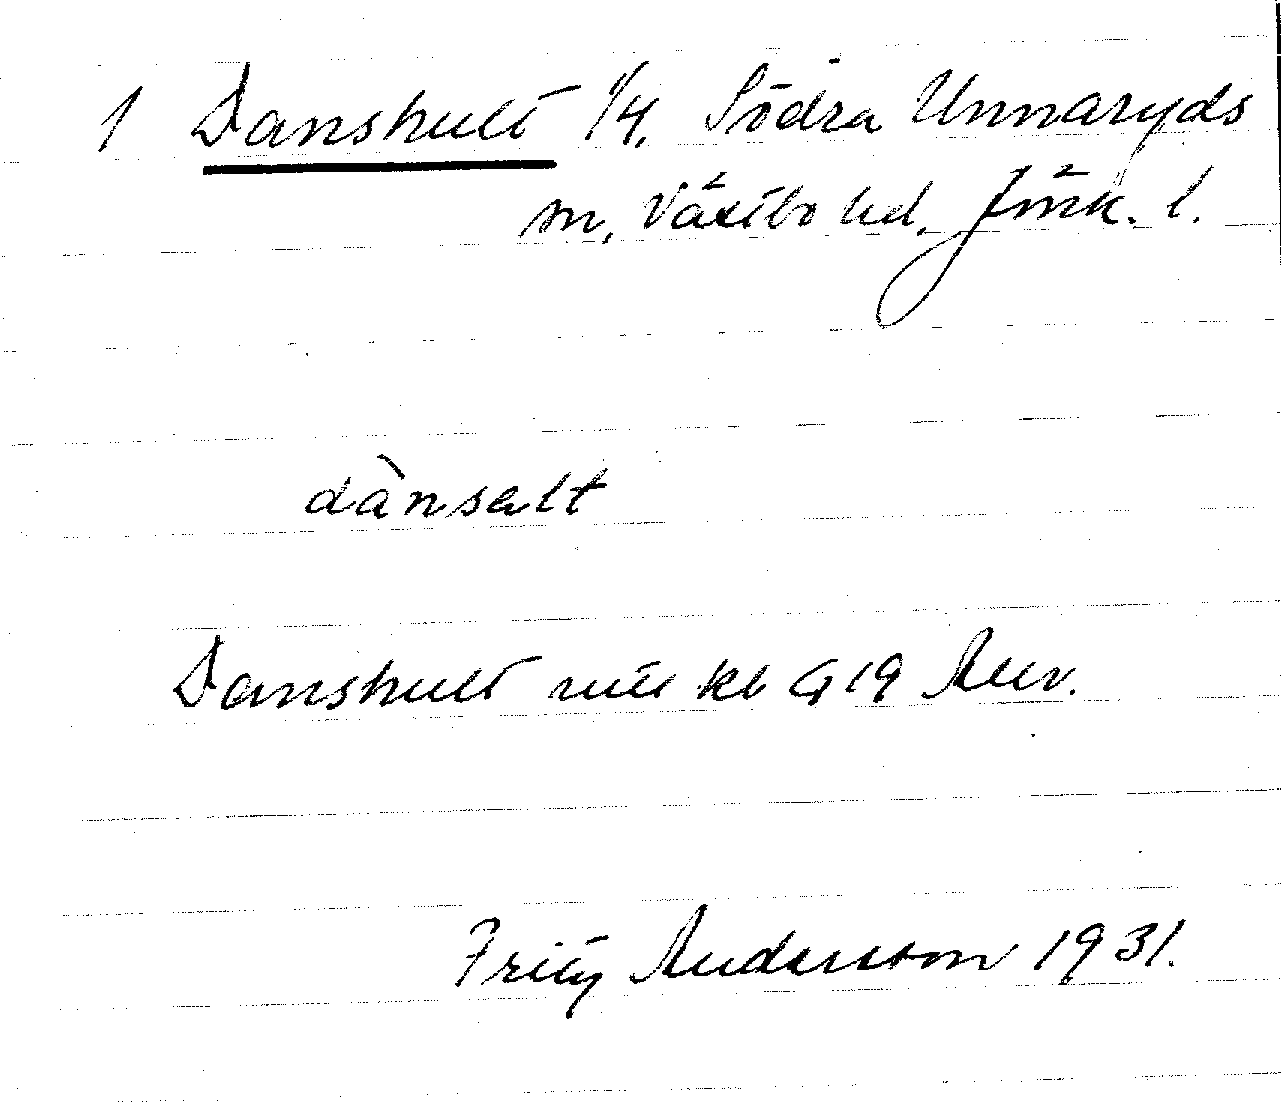 1 Danshult 1/4, Södra Unnaryds
sn, Västbo hd, Jönk. l.
dànsalt
Danshult kb 19
Fritz Andersson 1931.